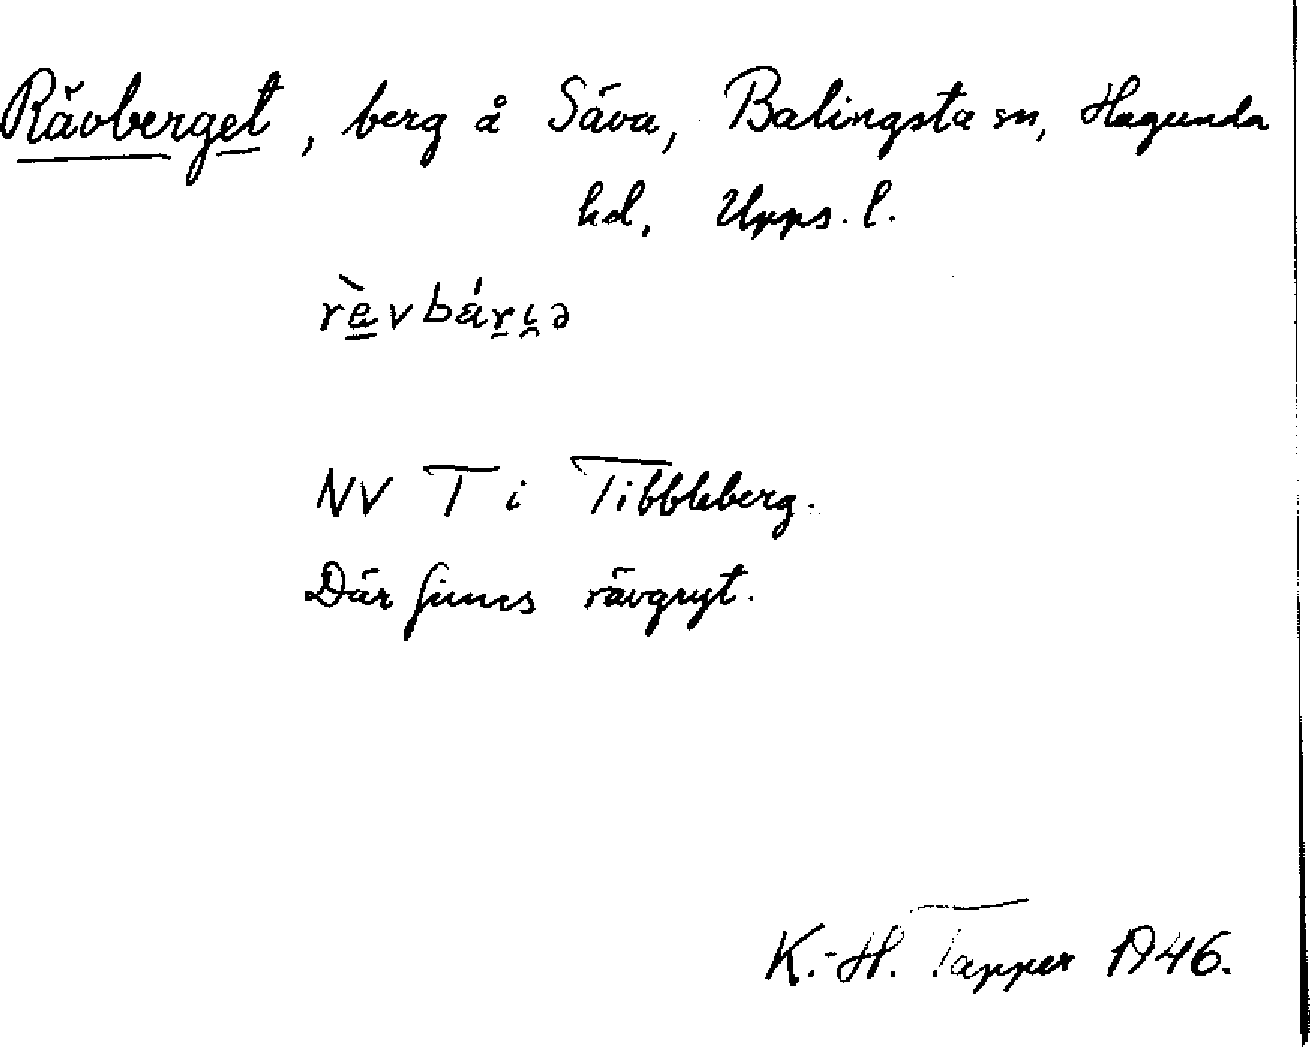 Rävberget, berg å Säva, Balingsta sn, Hagunda
hd, Upps. l.
NV T i Tibbleberg.
Där finnes rävgryt.
K.-H. Tapper 1946.